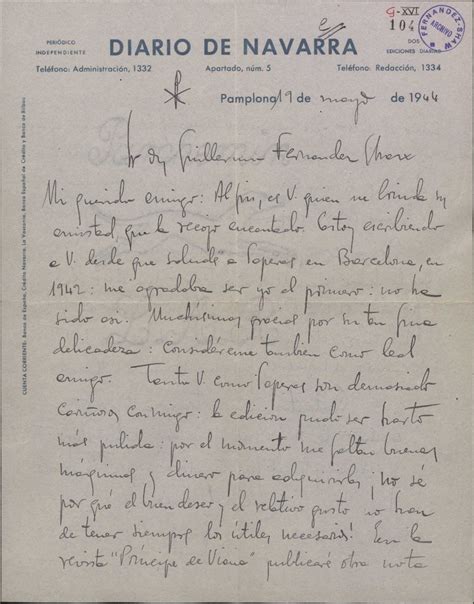 G-XVI
104
FERNANDEZ-SHAW
ARCHIVO
PERIÓDICO
INDEPENDIENTE
DIARIO DE NAVARRA
DOS
EDICIONES DIARIAS
Teléfono: Administración, 1332
Apartado, núm. 5
Teléfono: Redacción, 1334
Pamplona, 19 de mayo de 1944
Sr Dn Guillermo Fernandez Shaw
Mi querido amigo: Al fin, es V. quien me brinda su
amistad, que la recojo encantado. Estoy escribiendo
a V. desde que saludé a Soperas en Barcelona, en
1942: me agradaba ser yo el primero: no ha
sido así. Muchísimas gracias por su tan fina
delicadeza: Considéreme también como leal
amigo. Tanto V. como Soperas son demasiado
cariñosos conmigo: la edición pudo ser harto
más pulida: por el momento me faltan buenas
máquinas, y dinero para adquirirlas; ¡no sé
por qué el buen deseo y el relativo gusto no han
de tener siempre los útiles necesarios! En la
revista "Príncipe de Viana" publicaré otra nota
CUENTA CORRIENTE: Banco de España, Crédito Navarro, La Vasconia, Banco Español de Crédito y Banco de Bilbao